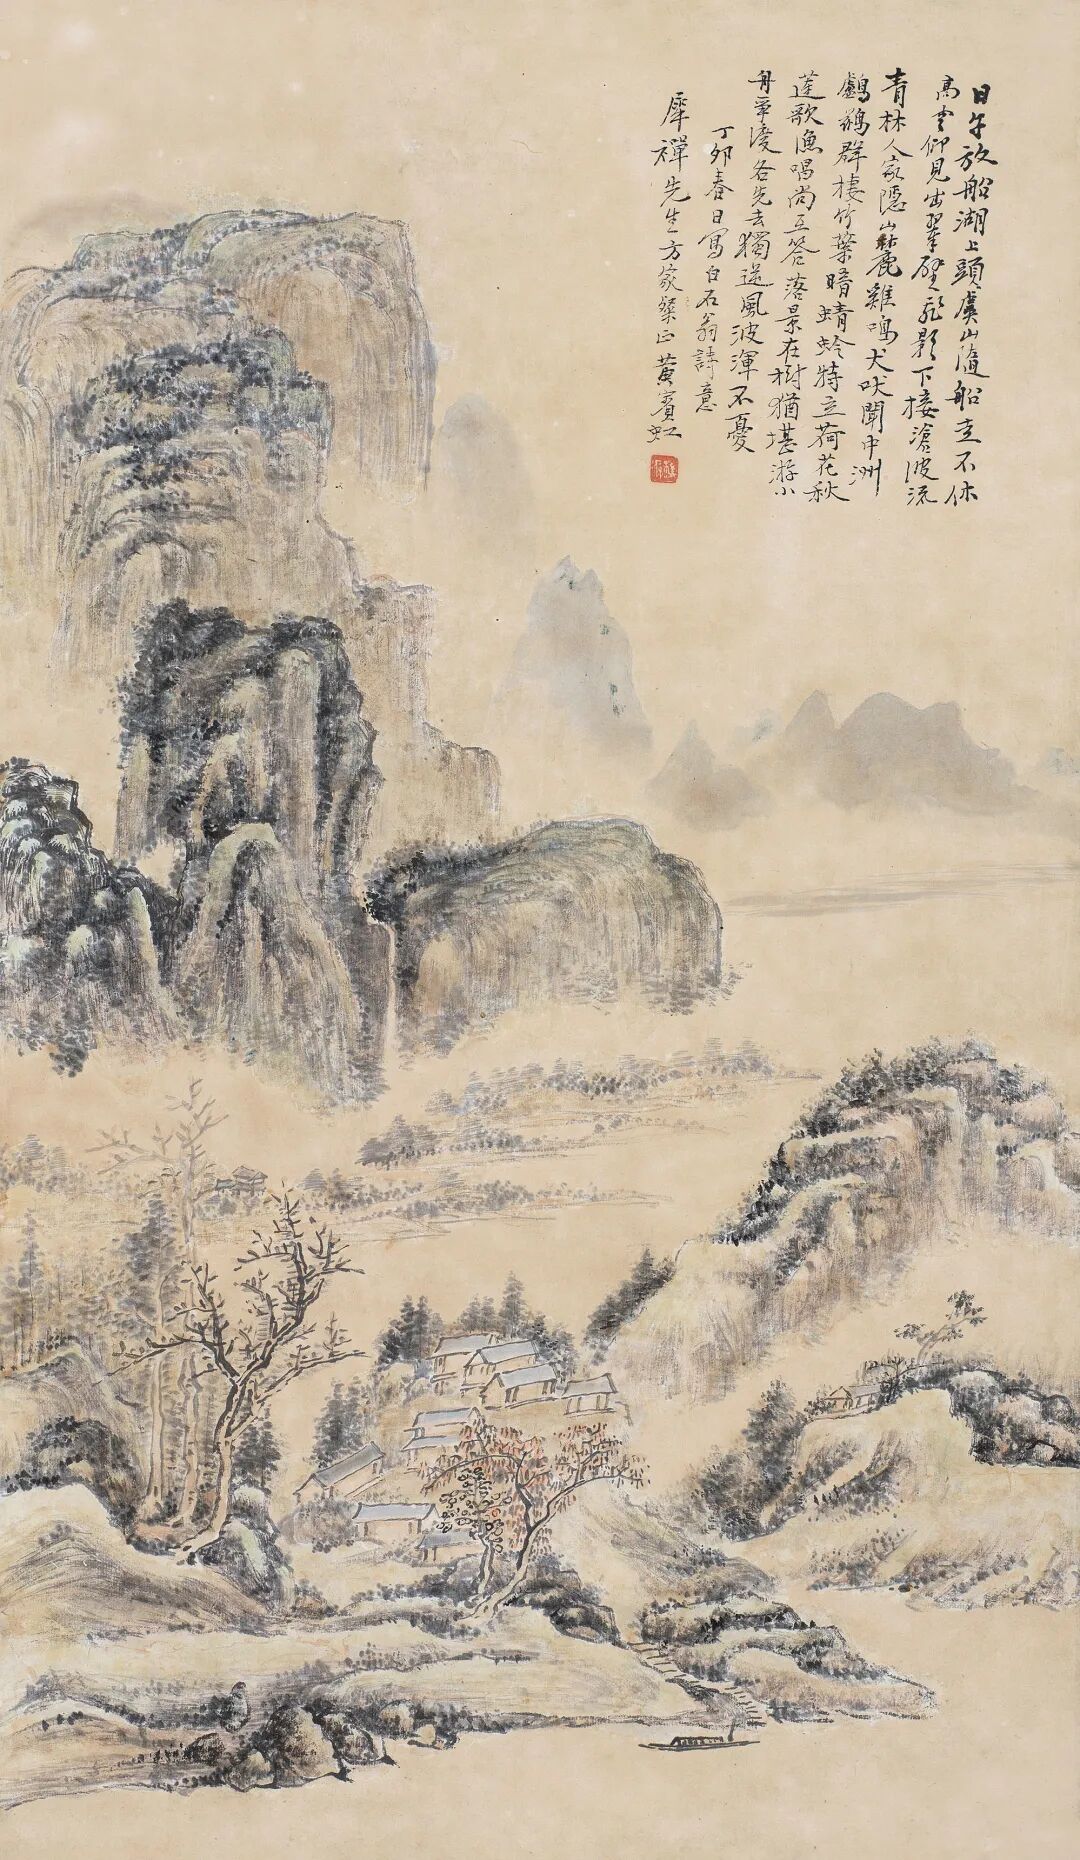 日午放船湖上頭虞山隨船走不休
高雲仰見出翠壁飛影下接滄波流
青林人家隱山麓雞鳴犬吠聞中洲
鸕鶿群棲竹葉暗蜻蛉特立荷花秋
蓮歌漁唱尚互答落景在樹猶堪游小
舟爭淩各先去獨逆風波渾不憂
丁卯春日寫白石翁詩意
犀禪先生方家粲正黃賓虹